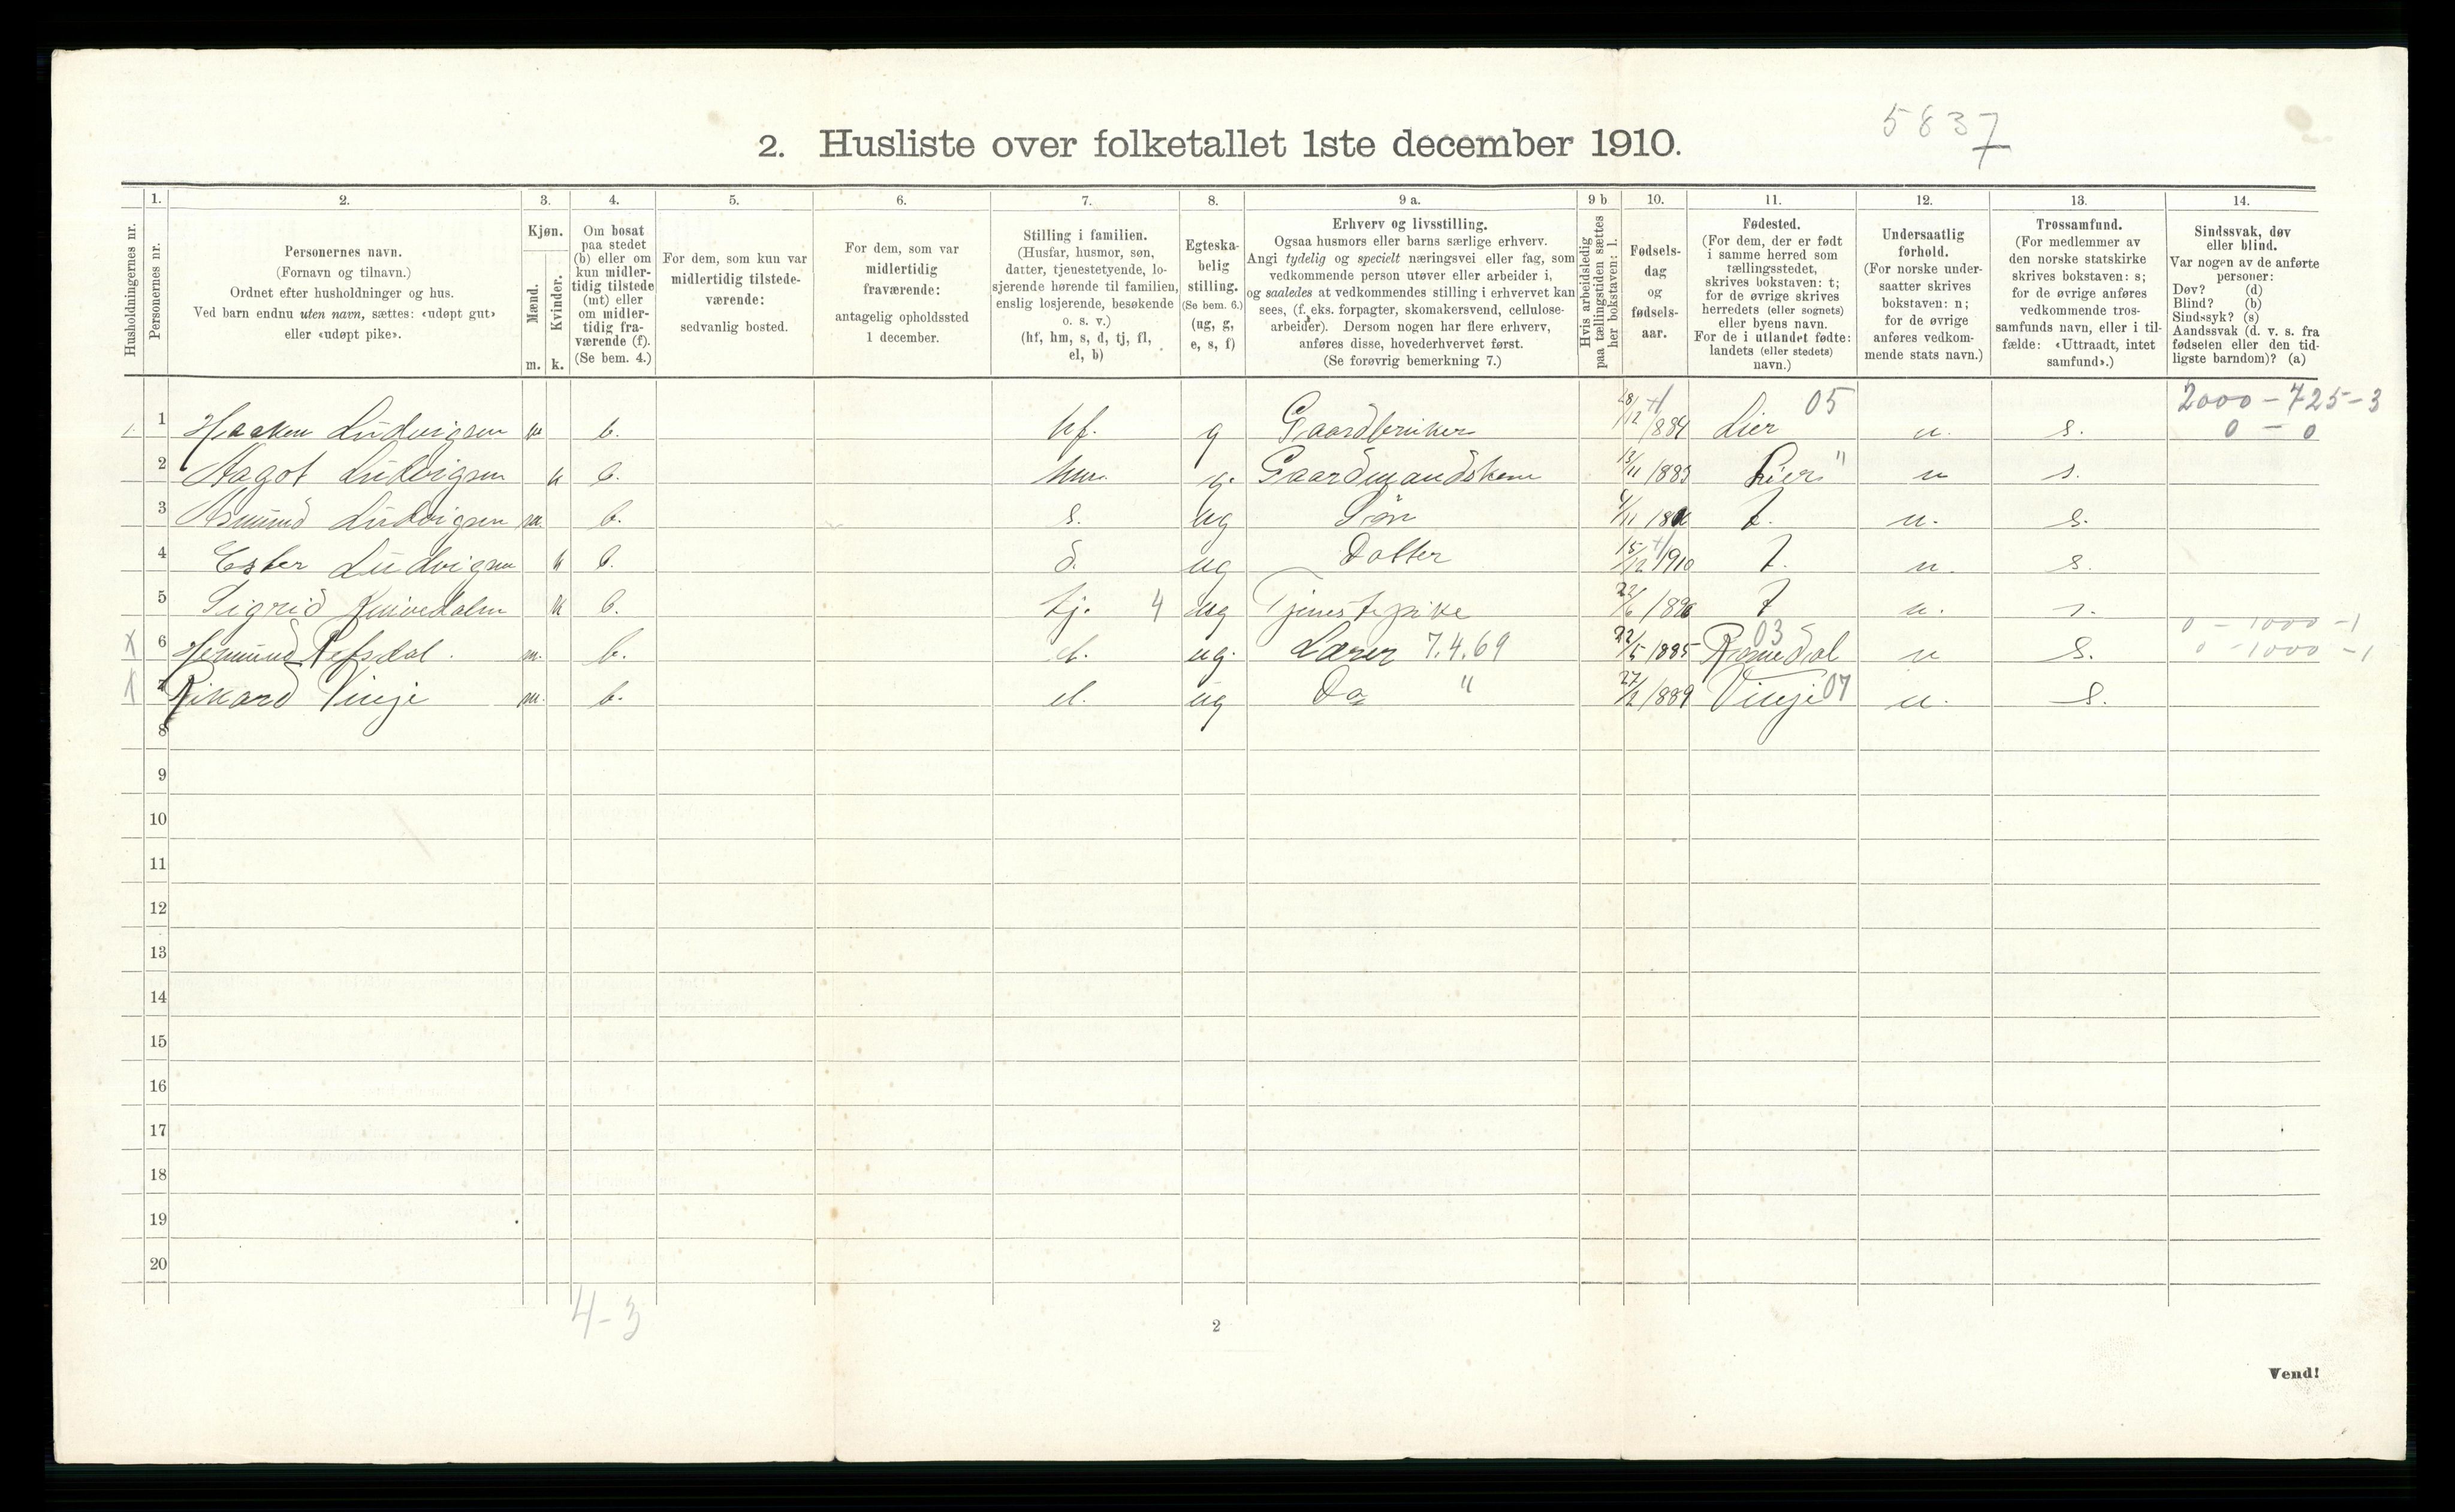 5837
2. Husliste over folketallet 1ste december 1910.
Husholdningernes nr.
1. Personernes nr.
2. Personernes navn.
(Fornavn og tilnavn.)
Ordnet efter husholdninger og hus.
Ved barn endnu uten navn, sættes: «udøpt gut»
eller «udøpt pike».
3. Kjøn.
Mænd. m.
Kvinder. k.
4. Om bosat
paa stedet
(b) eller om
kun midler-
tidig tilstede
(mt) eller
om midler-
tidig fra-
værende (f).
(Se bem. 4.)
5. For dem, som kun var
midlertidig tilstede-
værende:
sedvanlig bosted.
6. For dem, som var
midlertidig
fraværende:
antagelig opholdssted
1 december.
7. Stilling i familien.
(Husfar, husmor, søn,
datter, tjenestetyende, lo-
sjerende hørende til familien,
enslig losjerende, besøkende
o. s. v.)
(hf, hm, s, d, tj, fl,
el, b)
8. Egteska-
belig
stilling.
(Se bem. 6.)
(ug, g,
e, s, f)
9 a. Erhverv og livsstilling.
Ogsaa husmors eller barns særlige erhverv.
Angi tydelig og specielt næringsvei eller fag, som
vedkommende person utøver eller arbeider i,
og saaledes at vedkommendes stilling i erhvervet kan
sees, (f. eks. forpagter, skomakersvend, cellulose-
arbeider). Dersom nogen har flere erhverv,
anføres disse, hovederhvervet først.
(Se forøvrig bemerkning 7.)
9 b Hvis arbeidsledig
paa tællingstiden sættes
her bokstaven: l.
10. Fødsels-
dag
og
fødsels-
aar.
11. Fødested.
(For dem, der er født
i samme herred som
tællingsstedet,
skrives bokstaven: t;
for de øvrige skrives
herredets (eller sognets)
eller byens navn.
For de i utlandet fødte:
landets (eller stedets)
navn.)
12. Undersaatlig
forhold.
(For norske under-
saatter skrives
bokstaven: n;
for de øvrige
anføres vedkom-
mende stats navn.)
13. Trossamfund.
(For medlemmer av
den norske statskirke
skrives bokstaven: s;
for de øvrige anføres
vedkommende tros-
samfunds navn, eller i til-
fælde: «Uttraadt, intet
samfund».)
14. Sindssvak, døv
eller blind.
Var nogen av de anførte
personer:
Døv? (d)
Blind? (b)
Sindssyk? (s)
Aandssvak (d. v. s. fra
fødselen eller den tid-
ligste barndom)? (a)
05 2000 - 725 - 3
1 Haaken Ludvigsen m b. hf. g Gaardbruker 18/12 1884 Lier n. s. 0 - 0
2 Aagot Ludvigsen k b. hm. g. Gaardmandskone 13/11 1883 Lier " n s.
3 Asmund Ludvigsen m. b. s. ug Søn t. n. s.
4 Ester Ludvigsen k b. d. ug Datter 15/12 1910 t. n. s.
5 Sigrid k b. tj. 4 ug Tjenestepike t n. s.
0 - 1000 - 1
X 6 Refsdal. m. b. el. ug. Lærer 7.4.69 22/5 1885 03 n s. 0 - 1000 - 1
X 7 Rikard Vinje m. b. el. ug Do " 27/2 1889 Vinje 07 n. s.
8
9
10
11
12
13
14
15
16
17
18
19
20
4-3
2
Vend!